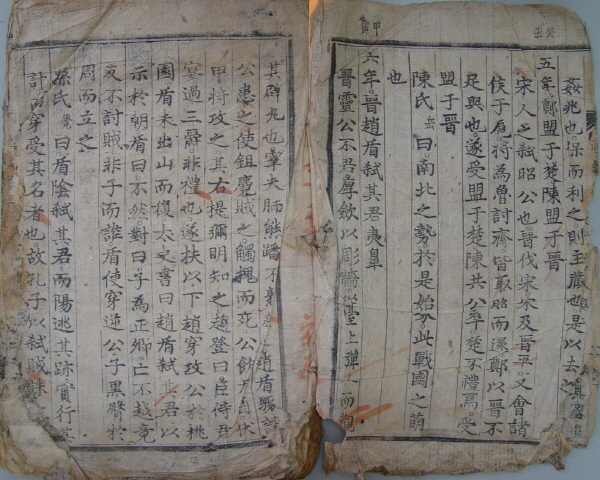 癸丑
姦兆也保而利之則主藏也是以去之
五年鄭盟于楚陳盟于晉
宋人之弑昭公也晉伐宋宋及晉平又會諸
侯于扈將為魯討齊皆取賂而還鄭以晉不
足與也遂受盟于楚陳共公卒楚不禮焉受
盟于晉
陳氏岳曰南北之勢於是始分此戰國之萌
也
甲寅
六年晉趙盾弑其君夷皐
晉靈公不君厚斂以彫墻從臺上彈人而觀
其辟丸也宰夫胹熊蹯不熟 趙盾驟諫
公患之使鉏麑賊之觸槐而死公飮盾酒伏
甲將攻之其右提彌明知之趨登曰臣侍君
宴過三爵非禮也遂扶以下趙穿攻公於桃
園盾未出山而復太史書曰趙盾弑其君以
示於朝盾曰不然對曰子為正卿亡不越竟
反不討賊非子而誰盾使穿逆公子黑臀於
周而立之
孫氏覺曰盾陰弑其君而陽逃其跡實行其
計而穿受其名者也故孔子以弑賊